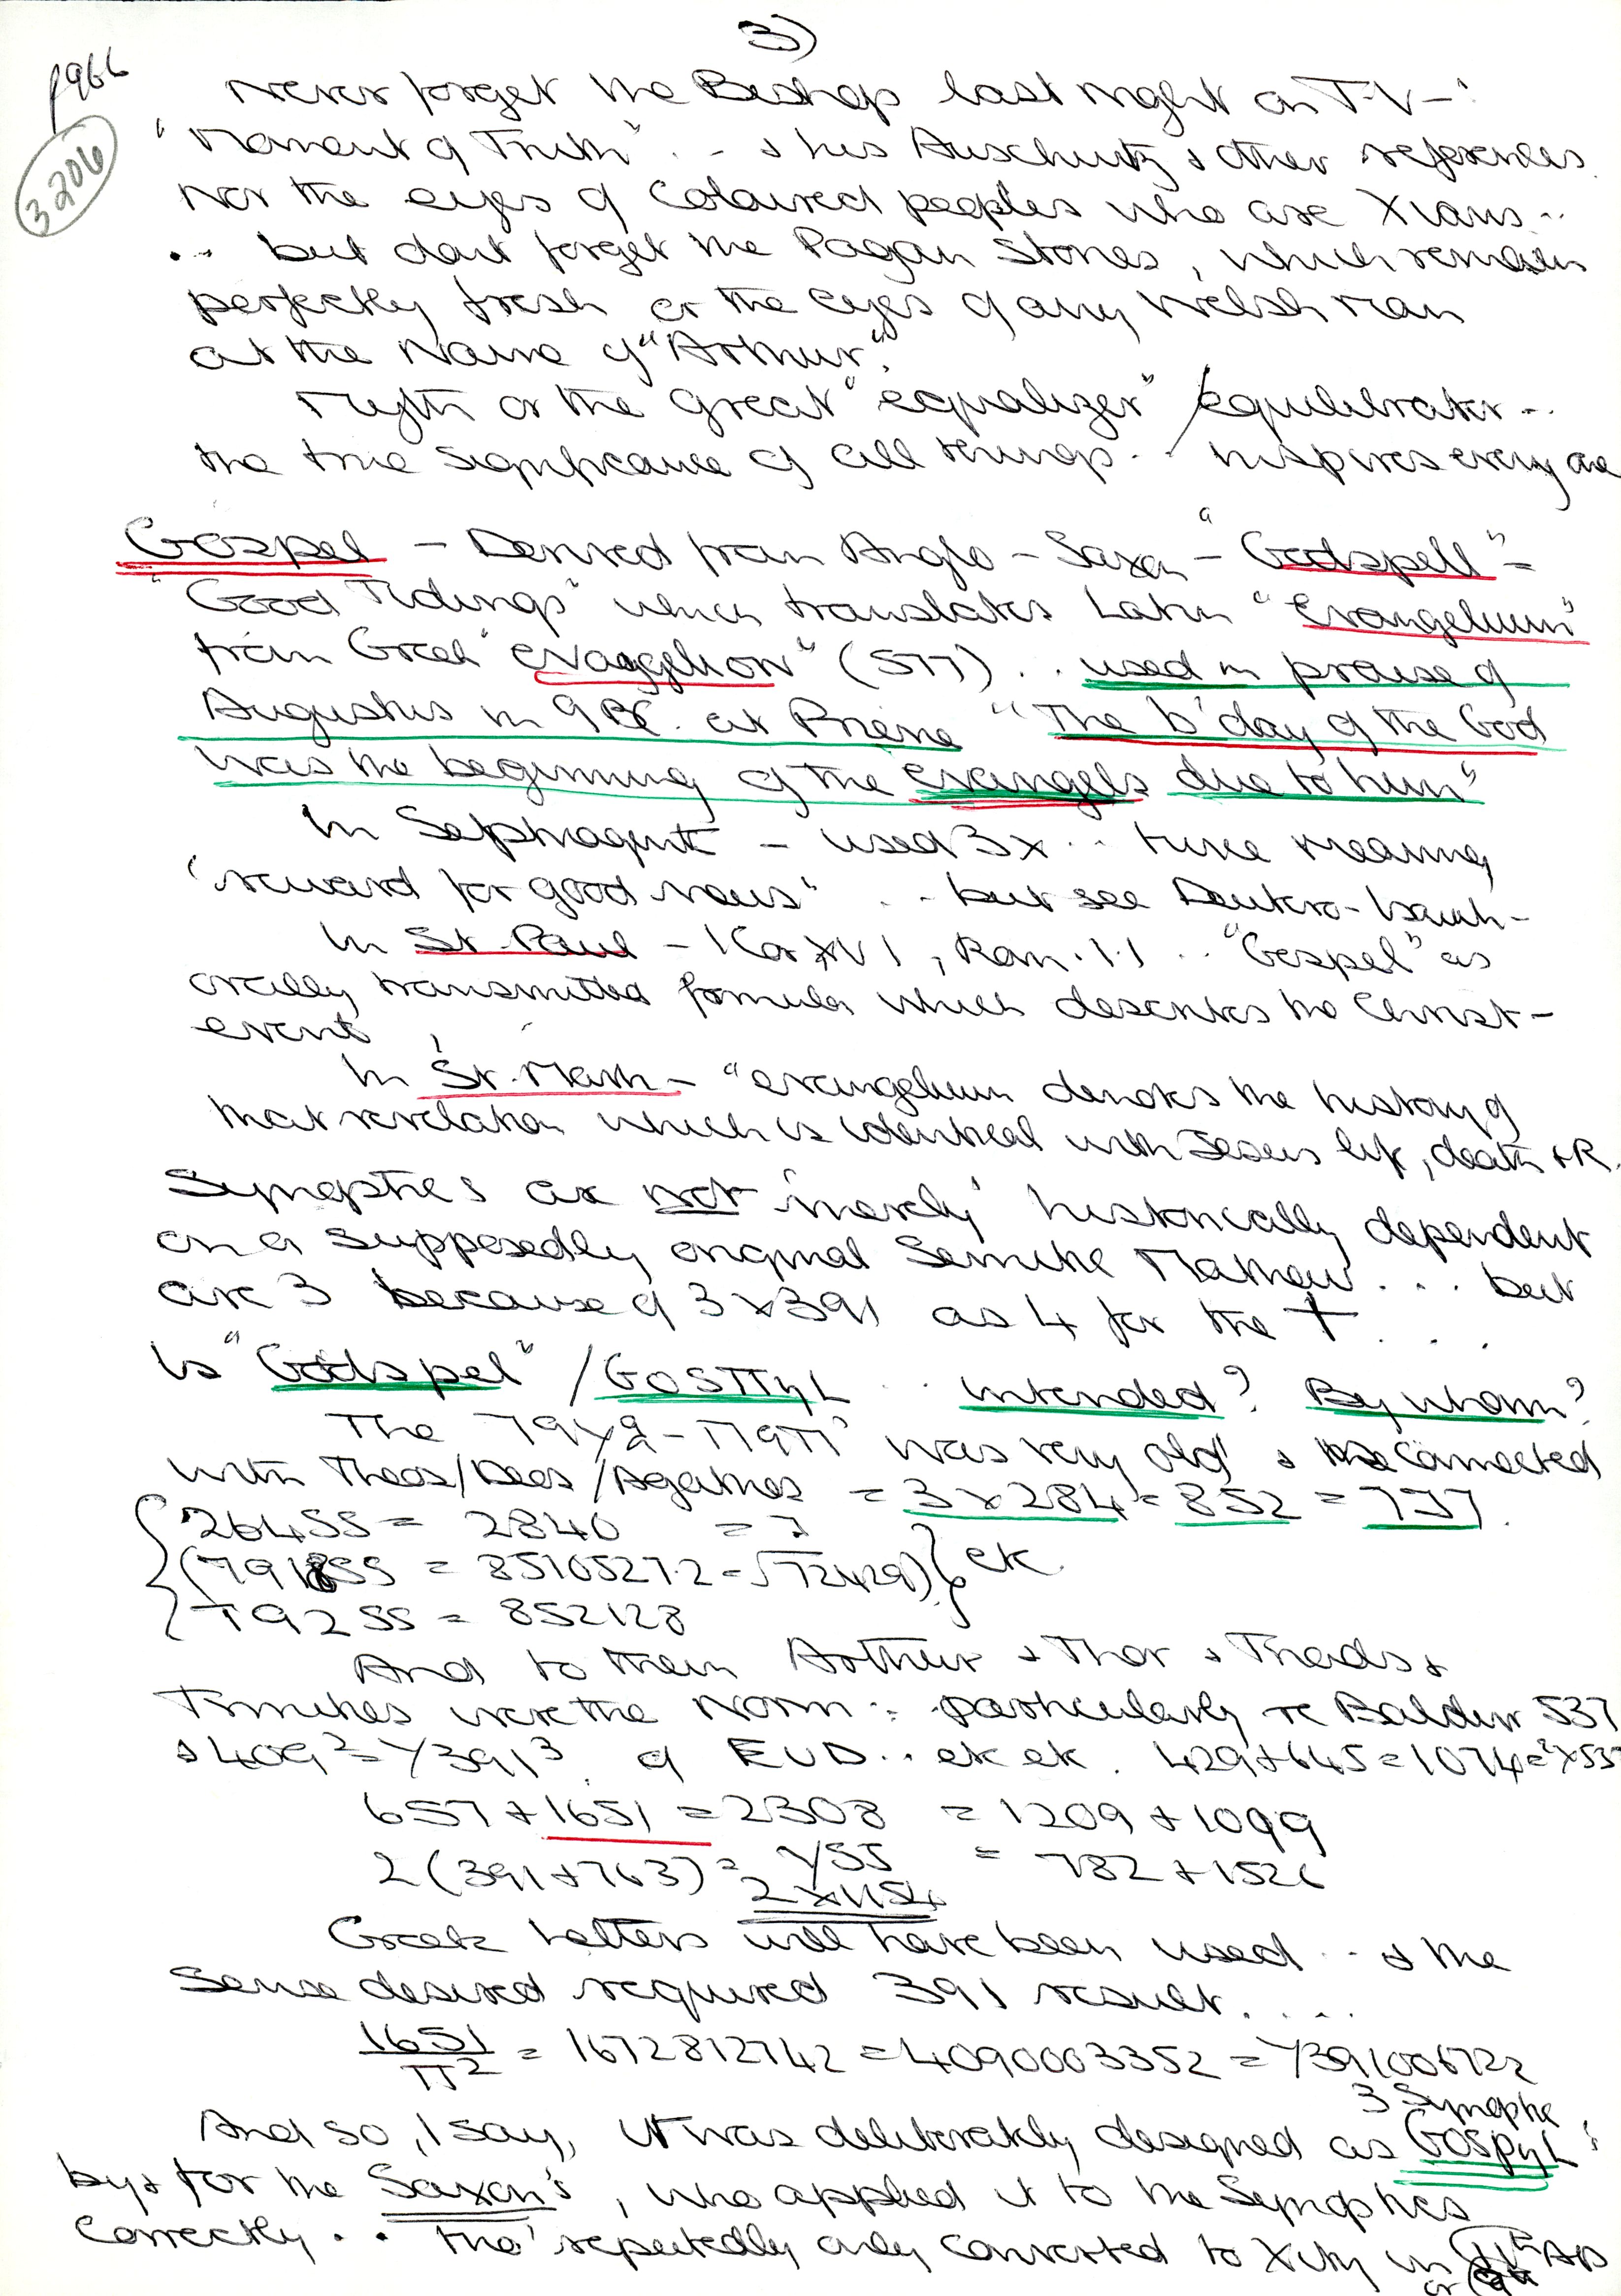 3)
p966
3206
Never forget the Bishop last night on T.V –
"Moment of Truth" .. & his Auschwitz & other references.
Nor the eyes of Coloured peoples who are Xians ..
.. but dont forget the Pagan Stones, which remain
perfectly fresh or the eyes of any Welsh man
at the Name of "Arthur".
Myth or the great "equalizer" / equilibrator ..
the true significance of all things .. inspires every one
Gospel – Derived from Anglo – Saxon – "Godspell" =
"Good Tidings" which translates Latin "Evangelium"
from Greek "evaggelion" (577) .. used in praise of
Augustus in 9 BC. at Priene "The b'day of the God
was the beginning of the evangels due to him"
In Septuagint – used 3x .. twice meaning
"reward for good news" .. but see Deutero-Isaiah –
In St. Paul – 1 Cor XV 1, Rom. 1.1 .. "Gospel" as
orally transmitted formula which describes the Christ –
event,
In St. Mark – "evangelium denotes the history of
that revelation which is identical with Jesus life, death & R.
Synoptics are not 'merely' historically dependent
on a supposedly original Semitic Mathew ... but
are 3 because of 3 x 391 as 4 for the † ...
Is "Godspel" / GOSΠηL .. intended? By whom?
The was very old & connected
with Theos/Deos/Agathos = 3 x 284 = 852 = 737.
264SS = 2840 = 7
(7918SS = 85105272 = √72429) } etc.
792SS = 852128
And to them Arthur & Thor & Triads &
Trinities were the Norm : particularly re Baldur 537
& 409² = Y391³ of EUD .. etc etc. 429 + 645 = 1074 = 2x537
657 + 1651 = 2308 = 1209 + 1099
2(391 + 763) = YSS = 782 + 1526
2 x 1154
Greek Letters will have been used .. & the
Sense desired required 391 result ....
1651/π² = 1672812742 = 4090003352 = Y391006722
And so, I say, it was deliberately designed as 3 Synoptic GOSPηL
by & for the Saxon's, who applied it to the Synoptics
correctly .. tho' reputedly only converted to Xity in AD